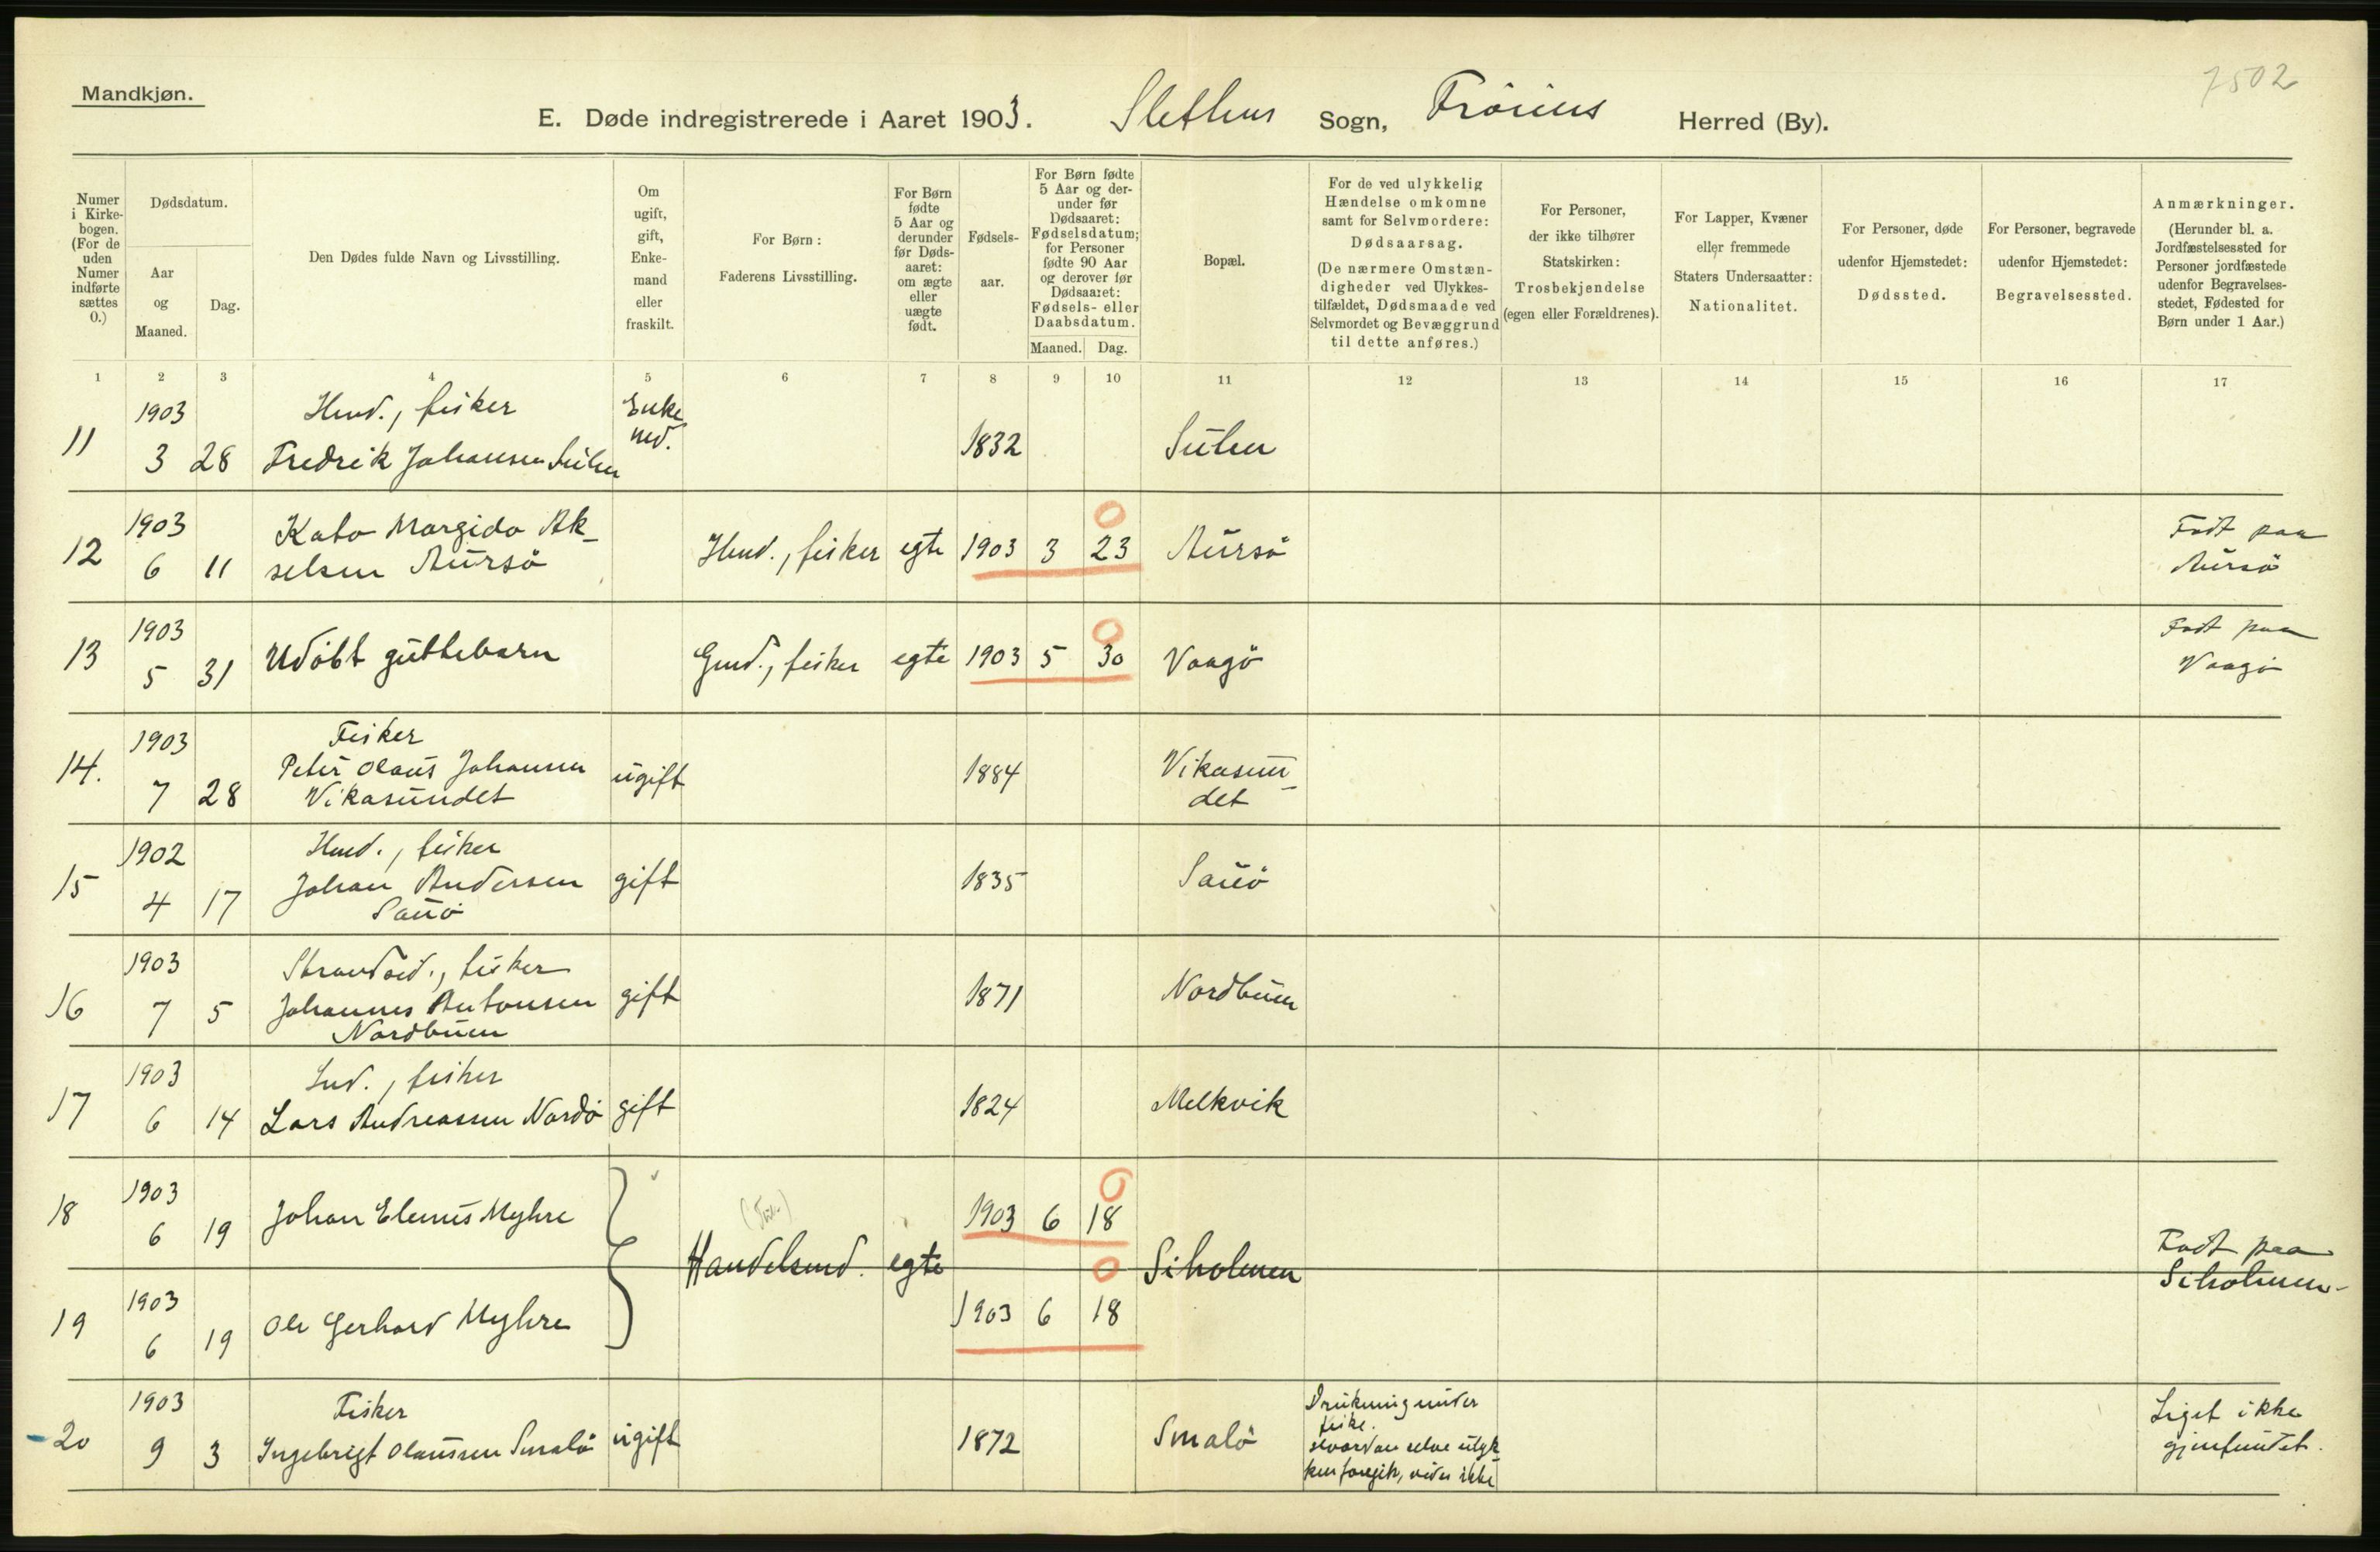 7502
Mandkjøn.
E. Døde indregistrerede i Aaret 1903. Slethens Sogn, Fröiens Herred (By).
Numer i Kirkebogen. (For de uden Numer indførte sættes 0.)
Dødsdatum.
Aar og Maaned.
Dag.
Den Dødes fulde Navn og Livsstilling.
Om ugift, gift, Enkemand eller fraskilt.
For Børn: Faderens Livsstilling.
For Børn fødte 5 Aar og derunder før Dødsaaret: om ægte eller uægte født.
Fødselsaar.
For Børn fødte 5 Aar og derunder før Dødsaaret: Fødselsdatum; for Personer fødte 90 Aar og derover før Dødsaaret: Fødsels- eller Daabsdatum.
Maaned. Dag.
Bopæl.
For de ved ulykkelig Hændelse omkomne samt for Selvmordere: Dødsaarsag. (De nærmere Omstændigheder ved Ulykkestilfældet, Dødsmaade ved Selvmordet og Bevæggrund til dette anføres.)
For Personer, der ikke tilhører Statskirken: Trosbekjendelse (egen eller Forældrenes).
For Lapper, Kvæner eller fremmede Staters Undersaatter: Nationalitet.
For Personer, døde udenfor Hjemstedet: Dødssted.
For Personer, begravede udenfor Hjemstedet: Begravelsessted.
Anmærkninger. (Herunder bl. a. Jordfæstelsessted for Personer jordfæstede udenfor Begravelsesstedet, Fødested for Børn under 1 Aar.)
1 2 3 4 5 6 7 8 9 10 11 12 13 14 15 16 17
1903 Hmd., fisker Enke
11 3 28 Fredrik Johansen Sulen md. 1832 Sulen
1903 Kato Margido Ak- 0 Födt paa
12 6 11 selsen Aursö Hmd., fisker egte 1903 3 23 Aursö Aursö
1903 0 Födt paa
13 5 31 Udöbt guttebarn Gmd., fisker egte 1903 5 30 Vaagö Vaagö
1903 Fisker
14. 7 28 Peter Olaus Johansen ugift 1884 Vikasun-
Vikasundet det
1902 Hmd., fisker
15 4 17 Johan Andersen gift 1835 Sauö
Sauö
1903 Strandsid., fisker
16 7 5 Johannes Antonsen gift 1871 Nordbuen
Nordbuen
1903 Ind., fisker
17 6 14 Lars Andreassen Nordö gift 1824 Melkvik
1903 0
18 6 19 Johan Elenus Myhre 1903 6 18
Handelsmd. egte 0 Siholmen Födt paa
Siholmen
1903
19 6 19 Ole Gerhard Myhre 1903 6 18
1903 Fisker Drukning under Liget ikke
fiske.
20 9 3 Ingebrigt Olaussen Smalö ugift 1872 Smalö hvordan selve ulyk- gjenfundet.
ken foregik, vides ikke